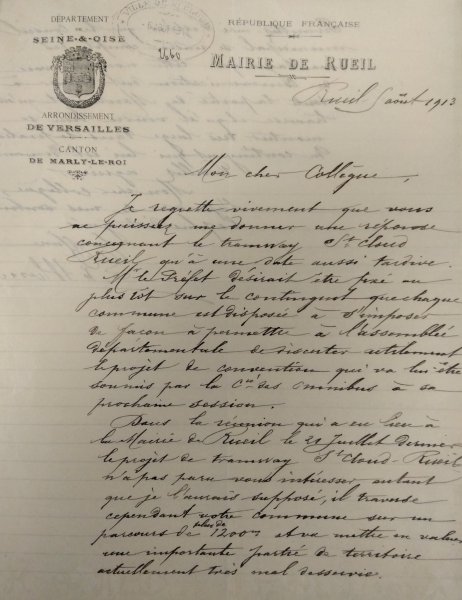 DÉPARTEMENT
DE
SEINE-&-OISE
ARRONDISSEMENT
DE VERSAILLES
CANTON
DE MARLY-LE-ROI
2660
RÉPUBLIQUE FRANÇAISE
MAIRIE DE RUEIL
Rueil 5 août 1913
Mon cher Collègue,
Je regrette vivement que vous
ne puissiez me donner une réponse
concernant le tramway St Cloud
Rueil qu'à une date aussi tardive.
Mr le Préfet désirait être fixé au
plus tôt sur le contingent que chaque
commune est disposée à s'imposer
de façon à permettre à l'assemblée
départementale de discuter utilement
le projet de convention qui va lui être
soumis par la Cie des Omnibus à sa
prochaine session.
Dans la réunion qui a eu lieu à
la Mairie de Rueil le 21 Juillet dernier
le projet de tramway St Cloud-Rueil
n'a pas paru vous intéresser autant
que je l'aurais supposé, il traverse
cependant votre commune sur un
parcours de plus de 1200m et va mettre en valeur
une importante partie de territoire
actuellement très mal desservie.